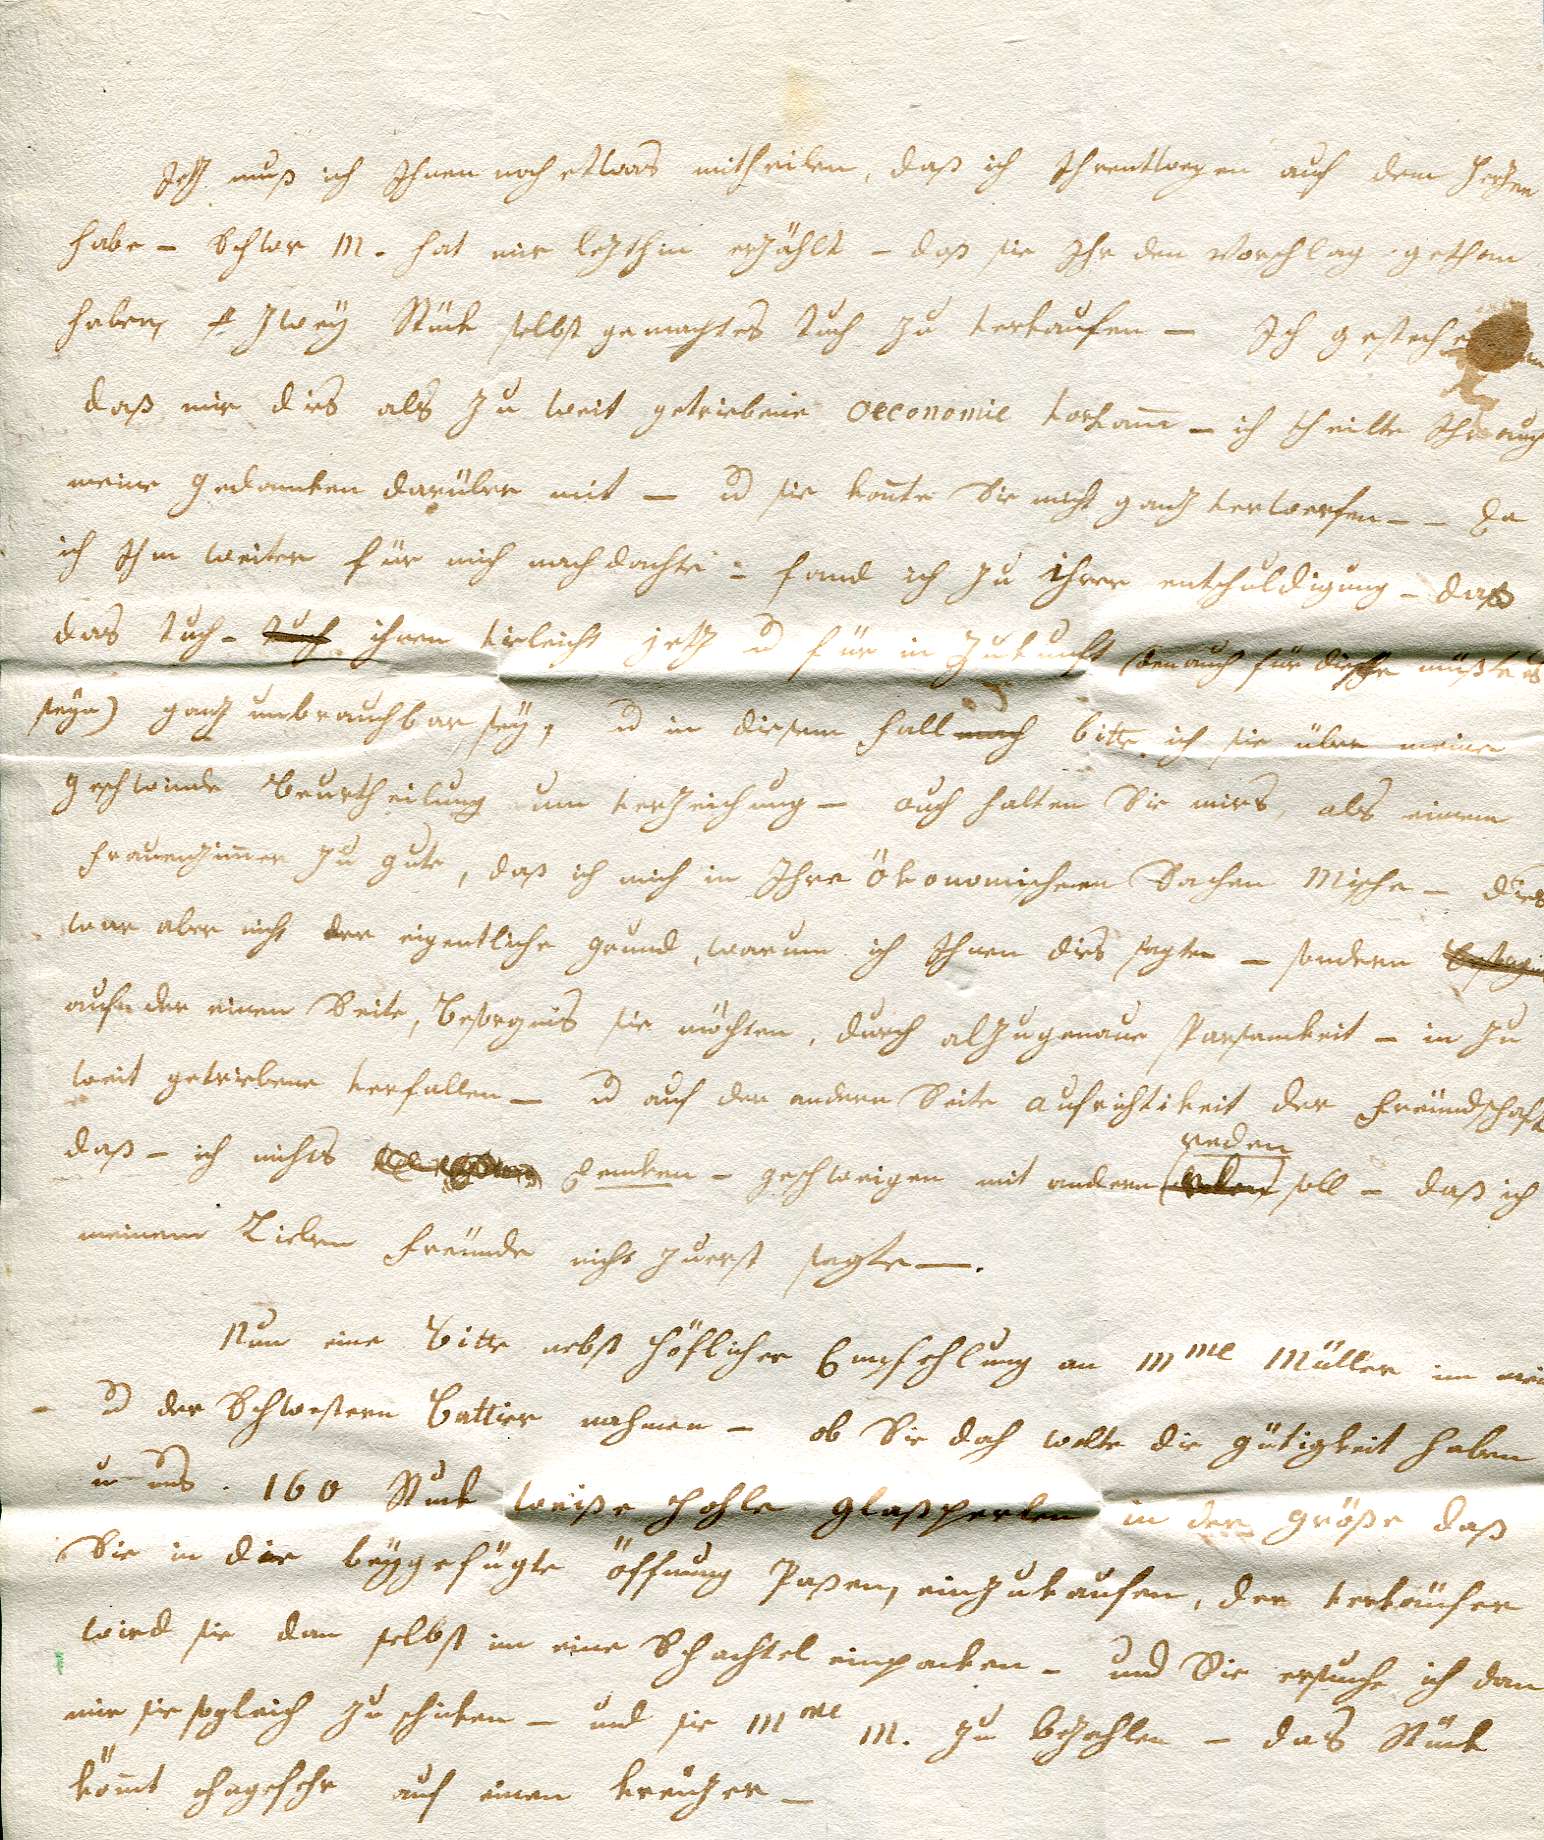 Jetz muß ich Ihnen noch etwas mitheilen, daß ich Ihrentwegen auf dem Herzen
habe – Schwr M. hat mir lezthin erzählt – daß sie Ihr den Vorschlag gethan
haben, zwey Stük selbst gemachtes tuch zu verkaufen – Ich gesteche
daß mir dies als zu weit getriebene oeconomie vorkamm – ich theilte Ihr auch
meine Gedanken darüber mit – u sie konte Sie nicht ganz verwerfen – – Da
ich Ihm weiter für mich nachdachte – fand ich zu ihrer entschuldigung – daß
das tuch – tuch ihnen vieleicht jetz u für in Zukunft (den auch für diesse müßte es
seyn) ganz unbrauchbar sey, u in diesem fall mach bitte ich sie über meine
geschwinde Beurtheilung um verzeichung – auch halten Sie mirs, als einem
frauenzimer zu gute, daß ich mich in Ihre ökonomichenen Sachen Mische – dies
war aber nicht der eigentliche grund, warum ich Ihnen dies sagte – sondern
auf der einen Seite, Besorgnis sie möchten, durch alzugenaue sparsamkeit – in zu
weit getriebene verfallen – u auf der andern Seite aufrichtikeit der freündschaft
daß – ich nichts denken – geschweigen mit andern reden soll – daß ich
meinem Lieben freünde nicht zuerst sagte —.
Nun eine Bitte nebst höflicher Empfehlung an Mme Müller im
– u der Schwestern Battier nahmen – ob Sie doch wolte die gütigkeit haben
u uns . 160 Stuk weiße hohle glaßperlen in der größe daß
Sie in die beygefügte öffnung Paßen, einzukaufen, der verkäufer
wird sie dan selbst in eine Schachtel einpacken – und Sie ersuche ich dan
mir sie sogleich zu schiken – und sie Mme M. zu bezahlen – das Stük
kömt ohngefehr auf einen kreüzer –